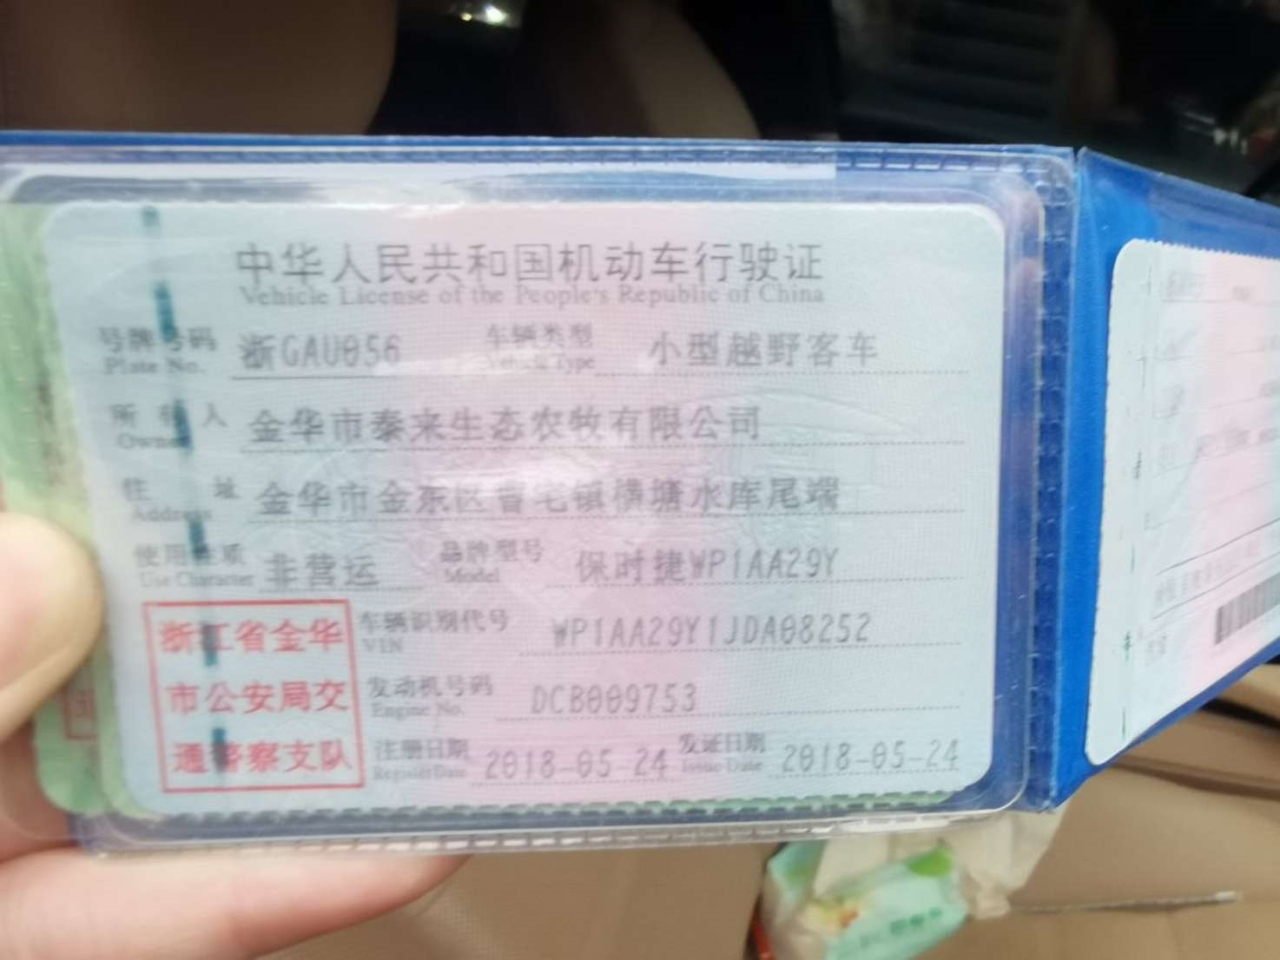 中华人民共和国机动车行驶证
Vehicle License of the People's Republic of China
号牌号码 浙GAU056 车辆类型 小型越野客车
Plate No. Vehicle Type
所有人 金华市泰来生态农牧有限公司
Owner
住址 金华市金东区曹宅镇横塘水库尾端
Address
使用性质 非营运 品牌型号 保时捷WP1AA29Y
Use Character Model
车辆识别代号 WP1AA29Y1JDA08252
VIN
发动机号码 DCB009753
Engine No.
注册日期 2018-05-24 发证日期 2018-05-24
Register Date Issue Date
浙江省金华
市公安局交
通警察支队